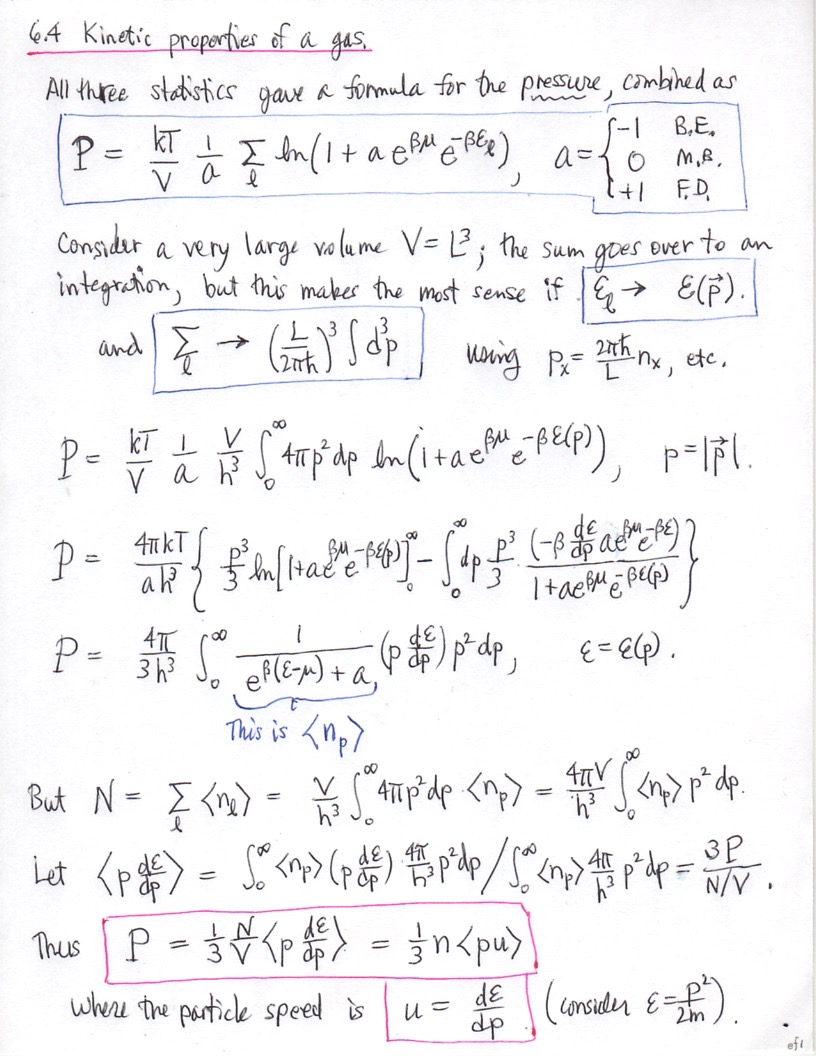 6.4 Kinetic properties of a gas.
All three statistics gave a formula for the pressure, combined as
P = kT/V 1/a Σ_ℓ ln(1 + a e^{βμ} e^{-βε_ℓ}), a = { -1 B.E. 0 M.B. +1 F.D.
Consider a very large volume V = L³; the sum goes over to an
integration, but this makes the most sense if ε_ℓ → ε(p⃗).
and Σ_ℓ → (L/2πħ)³ ∫ d³p using p_x = 2πħ/L n_x, etc.
P = kT/V 1/a V/h³ ∫_0^∞ 4πp²dp ln(1 + a e^{βμ} e^{-βε(p)}), p = |p⃗|.
P = 4πkT/ah³ { p³/3 ln[1+ae^{βμ} e^{-βε(p)}]_0^∞ - ∫_0^∞ dp p³/3 (-β dε/dp ae^{βμ} e^{-βε})/(1+ae^{βμ} e^{-βε(p)}) }
P = 4π/3h³ ∫_0^∞ 1/(e^{β(ε-μ)} + a) (p dε/dp) p²dp, ε = ε(p).
This is ⟨n_p⟩
But N = Σ_ℓ ⟨n_ℓ⟩ = V/h³ ∫_0^∞ 4πp²dp · ⟨n_p⟩ = 4πV/h³ ∫_0^∞ ⟨n_p⟩ p²dp.
Let ⟨p dε/dp⟩ = ∫_0^∞ ⟨n_p⟩ (p dε/dp) 4π/h³ p²dp / ∫_0^∞ ⟨n_p⟩ 4π/h³ p²dp = 3P/N/V.
Thus P = 1/3 N/V ⟨p dε/dp⟩ = 1/3 n⟨pu⟩
where the particle speed is u = dε/dp (consider ε = p²/2m).
ef1